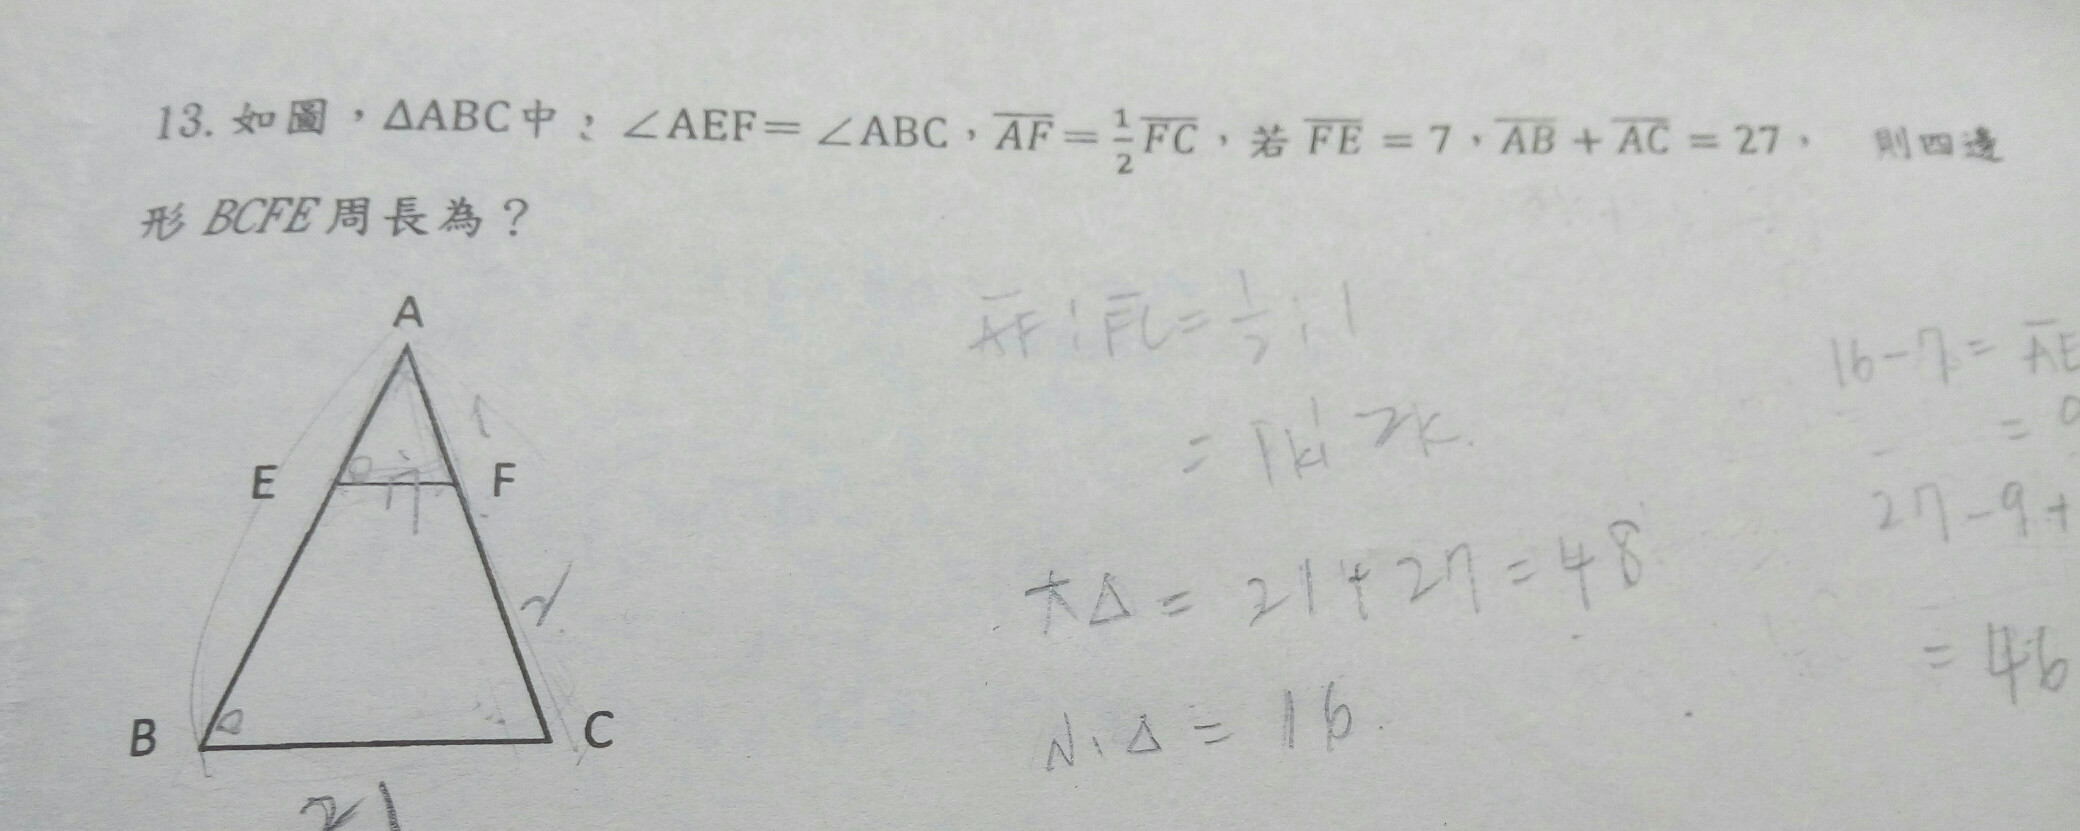 13. 如圖，ΔABC中；∠AEF=∠ABC，AF=1/2FC，若FE=7，AB+AC=27， 則四邊
形BCFE周長為？
A
E
F
B
C
1
7
2
21
AF:FC=1/2:1
=1k:2k.
大Δ=21+27=48
小Δ=16.
16-7=AE
=9
27-9+
=46